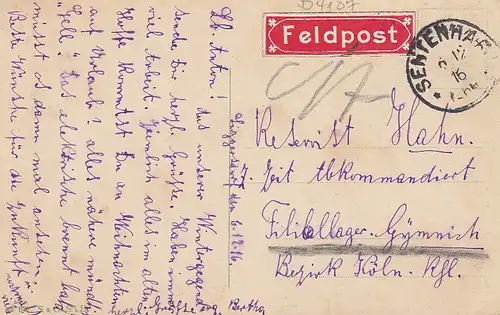 D4187
Feldpost
SENTENHA
6 12
16
Reservist Hahn.
z. Zeit abkommandiert
Filiallager-Gymnich
Bezirk Köln. Rhl.
den 6.12.16.
Lb. Anton!
Aus unserer Wintergegend
sende Dir herzl. Grüße. Haben immer
viel Arbeit. Ziemlich alles im alten.
Hoffe kommst Du an Weihnachten
auf Urlaub? Alles nähere mündlich
Gell. Das elektrische brennt bald
mußt es dann mal ansehen.
Beste Wünsche für die Zukunft
herzl. Grüße Bertha